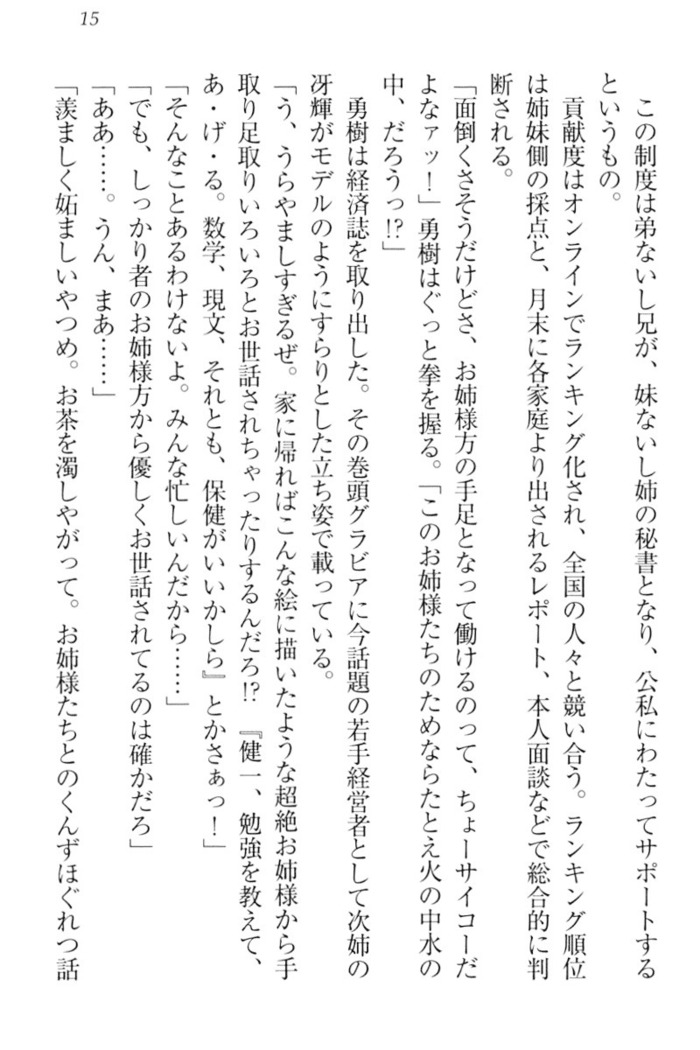 15
この制度は弟ないし兄が、妹ないし姉の秘書となり、公私にわたってサポートする
というもの。
貢献度はオンラインでランキング化され、全国の人々と競い合う。ランキング順位
は姉妹側の採点と、月末に各家庭より出されるレポート、本人面談などで総合的に判
断される。
「面倒くさそうだけどさ、お姉様方の手足となって働けるのって、ちょーサイコーだ
よなァッ！」勇樹はぐっと拳を握る。「このお姉様たちのためならたとえ火の中水の
中、だろうっ!?」
勇樹は経済誌を取り出した。その巻頭グラビアに今話題の若手経営者として次姉の
冴輝がモデルのようにすらりとした立ち姿で載っている。
「う、うらやましすぎるぜ。家に帰ればこんな絵に描いたような超絶お姉様から手
取り足取りいろいろとお世話されちゃったりするんだろ!?　『健一、勉強を教えて、
あ・げ・る。数学、現文、それとも、保健がいいかしら』とかさぁっ！」
「そんなことあるわけないよ。みんな忙しいんだから……」
「でも、しっかり者のお姉様方から優しくお世話されてるのは確かだろ」
「ああ……。うん、まあ……」
「羨ましく妬ましいやつめ。お茶を濁しやがって。お姉様たちとのくんずほぐれつ話